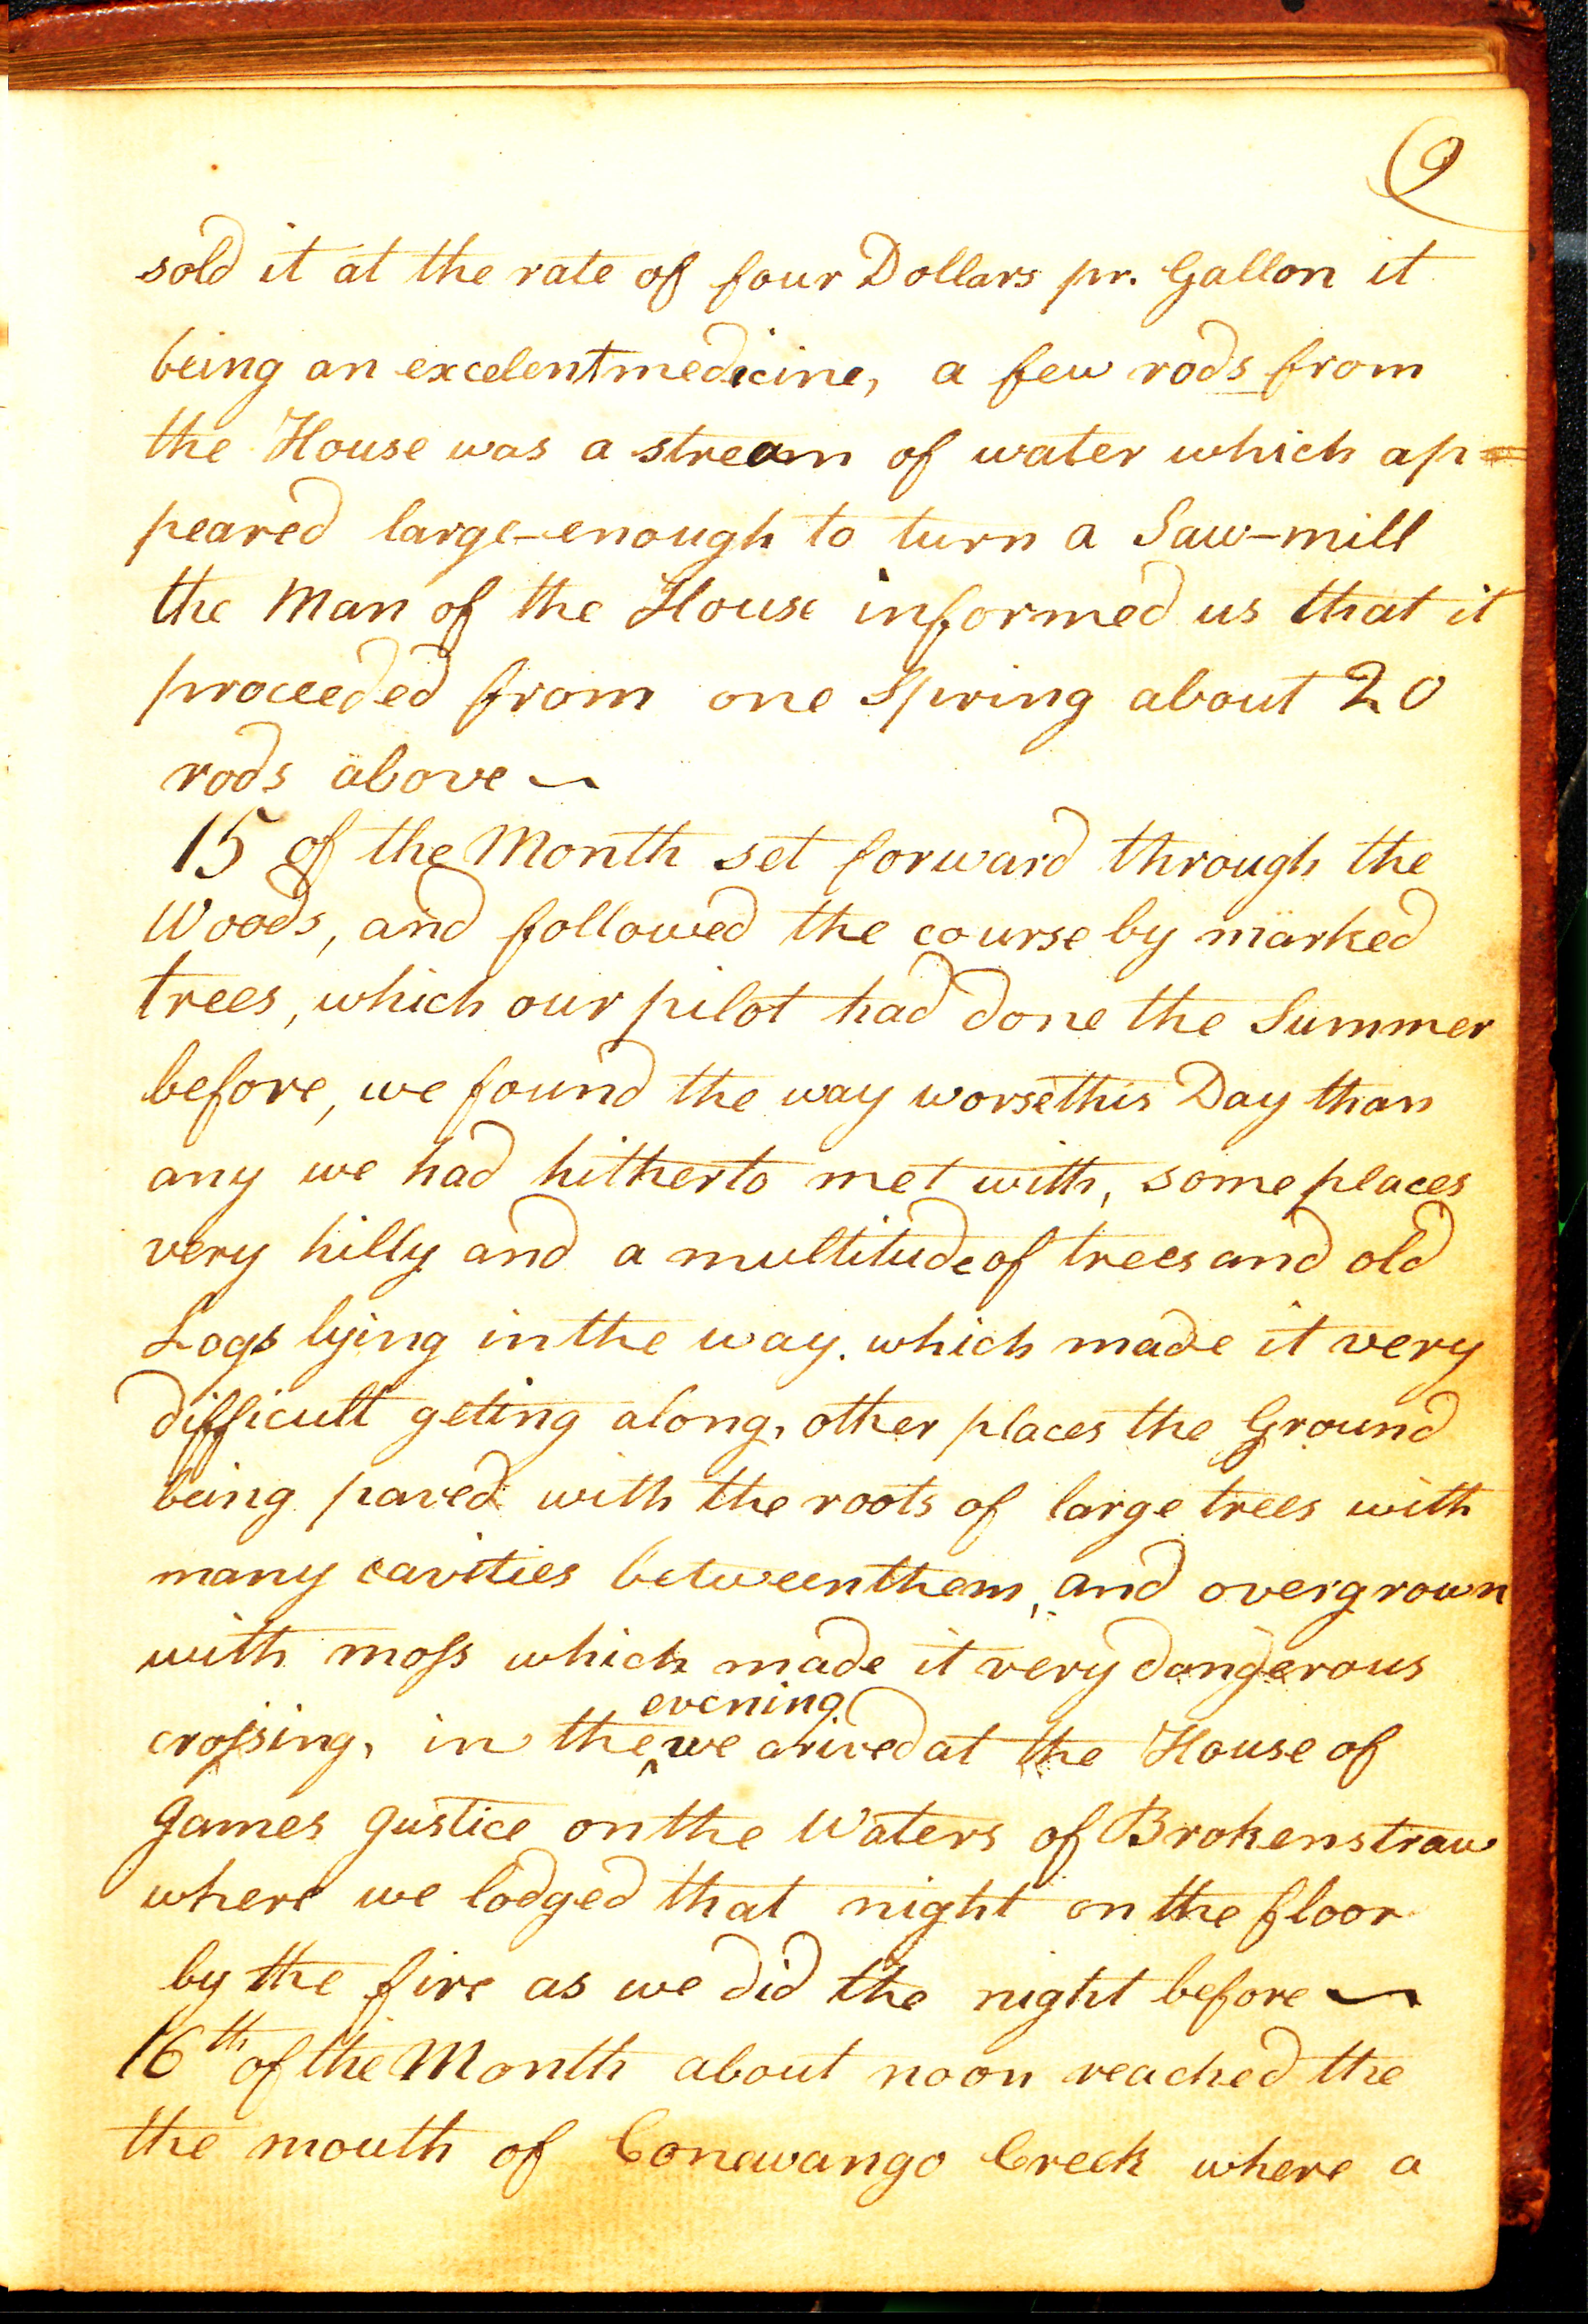 9
sold it at the rate of four Dollars pr. Gallon it
being an excelent medicine, a few rods from
the House was a stream of water which ap=
peared large-enough to turn a Saw-mill
the Man of the House informed us that it
proceeded from one Spring about 20
rods above ~
15 of the Month set forward through the
Woods, and followed the course by marked
trees, which our pilot had done the Summer
before, we found the way worse this Day than
any we had hitherto met with, some places
very hilly and a multitude of trees and old
Logs lying in the way. which made it very
difficult geting along, other places the Ground
being paved with the roots of large trees with
many cavities between them, and overgrown
with moſs which made it very dangerous
evening
croſsing, in the ‸ we arived at the House of
James Justice on the Waters of Brokenstraw
where we lodged that night on the floor
by the fire as we did the night before ~
16th of the Month about noon reached the
the mouth of Conewango Creek where a